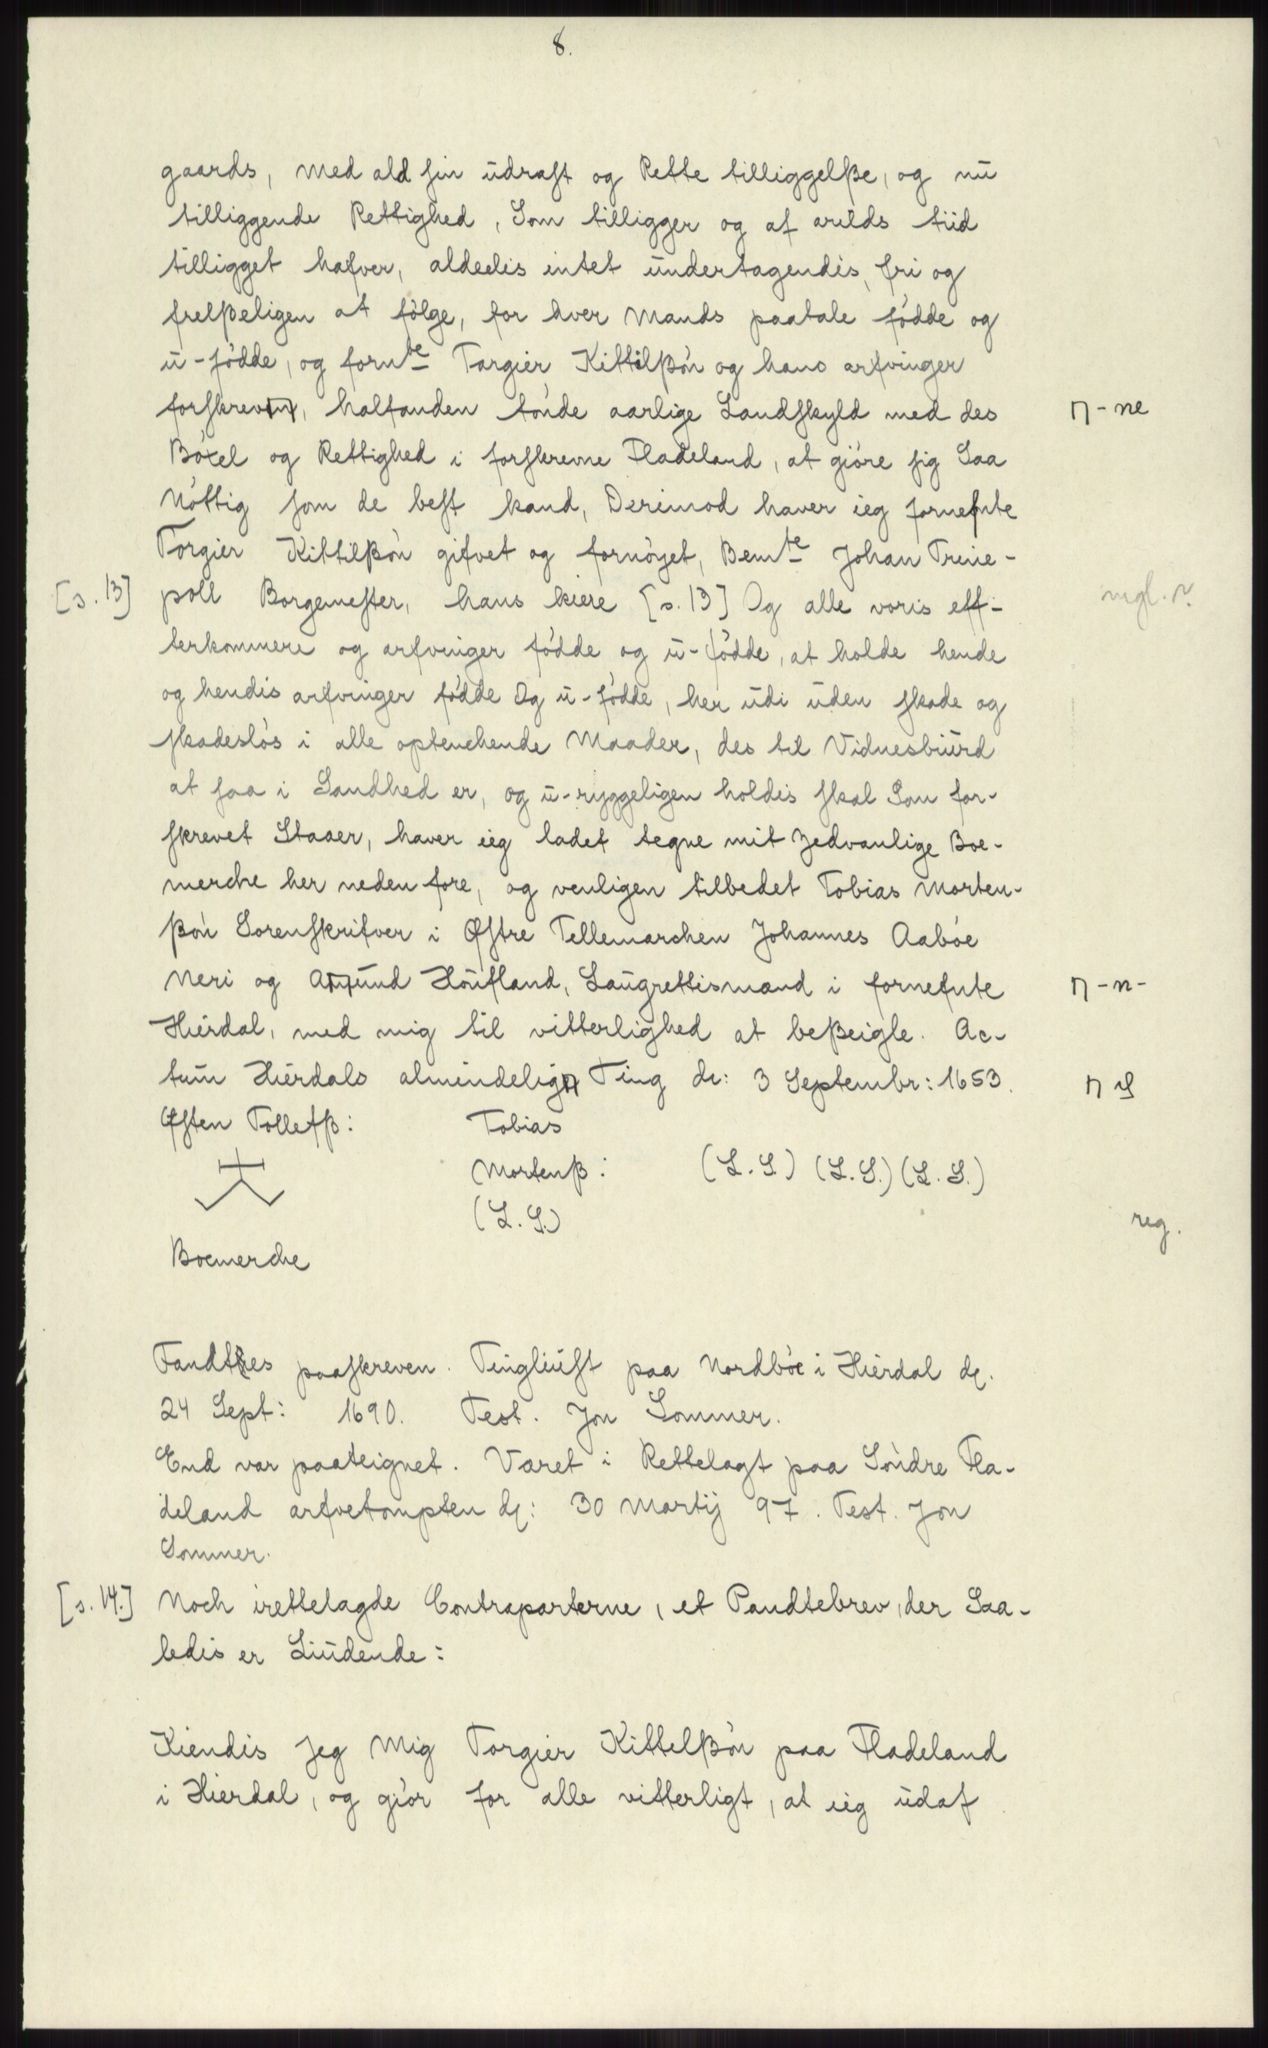 8.
gaards, med ald sin udraft og Rette tilliggelße, og nu
tilliggende Rettighed, Som tilligger og af arilds tiid
tilligget hafver, aldeelis intet undertagendis, fri og
frelßeligen at følge, for hver Mands paatale fødde og
u-fødde, og fornte Torgier Kittilßøn og hans arfvinger
forskreven, halfanden tønde aarlige Landskyld med des π - ne
Bøxel og Rettighed i forskrevne Fladeland, at giøre sig Saa
Nøttig som de best kand, Derimod haver ieg fornefnte
Torgier Kittilßøn gifvet og fornøyet, Bemte Johan Treie-
[s. 13] poll Borgemester, hans kiere [s. 13] Og alle voris eff- mgl. n.
terkommere og arfvinger fødde og u-fødde, at holde hende
og hendis arfvinger fødde Og u-fødde, her udi uden skade og
skadesløs i alle optenchende Maader, des til Vidnesbiurd
at saa i Sandhed er, og u-ryggeligen holdis skal Som for-
skrevet Staaer, haver ieg ladet tegne mit Zedvanlige Boe-
merche her neden fore, og venligen tilbedet Tobias Morten-
ßøn Sorenskrifver i Østre Tellemarchen Johannes Aabøe
Neri og Amund Høufland, Laugrettismænd i fornefnte π - n -
Hierdal, med mig til vitterlighed at beßeigle. Ac-
tum Hierdals almindelige Ting de: 3 Septembr: 1653.
Østen Tollefß: Tobias
Mortenß: (L.S.) (L.S.) (L.S.)
(L.S.)
reg.
Boemerche
Fandtes paaskreven. Tingliust paa Nordbøe i Hierdal d.
24 Sept: 1690. Test. Jon Sommer.
End var paateignet. Været i Rettelagt paa Søndre Fla-
deland arfvetompten d: 30 Martij 97. Test. Jon
Sommer.
[s. 14.] Noch irettelagde Contraparterne, et Pandtebrev, der Saa-
ledis er Liudende:
Kiendis Jeg Mig Torgier Kittelßøn paa Fladeland
i Hierdal, og giør for alle vitterligt, at ieg udaf